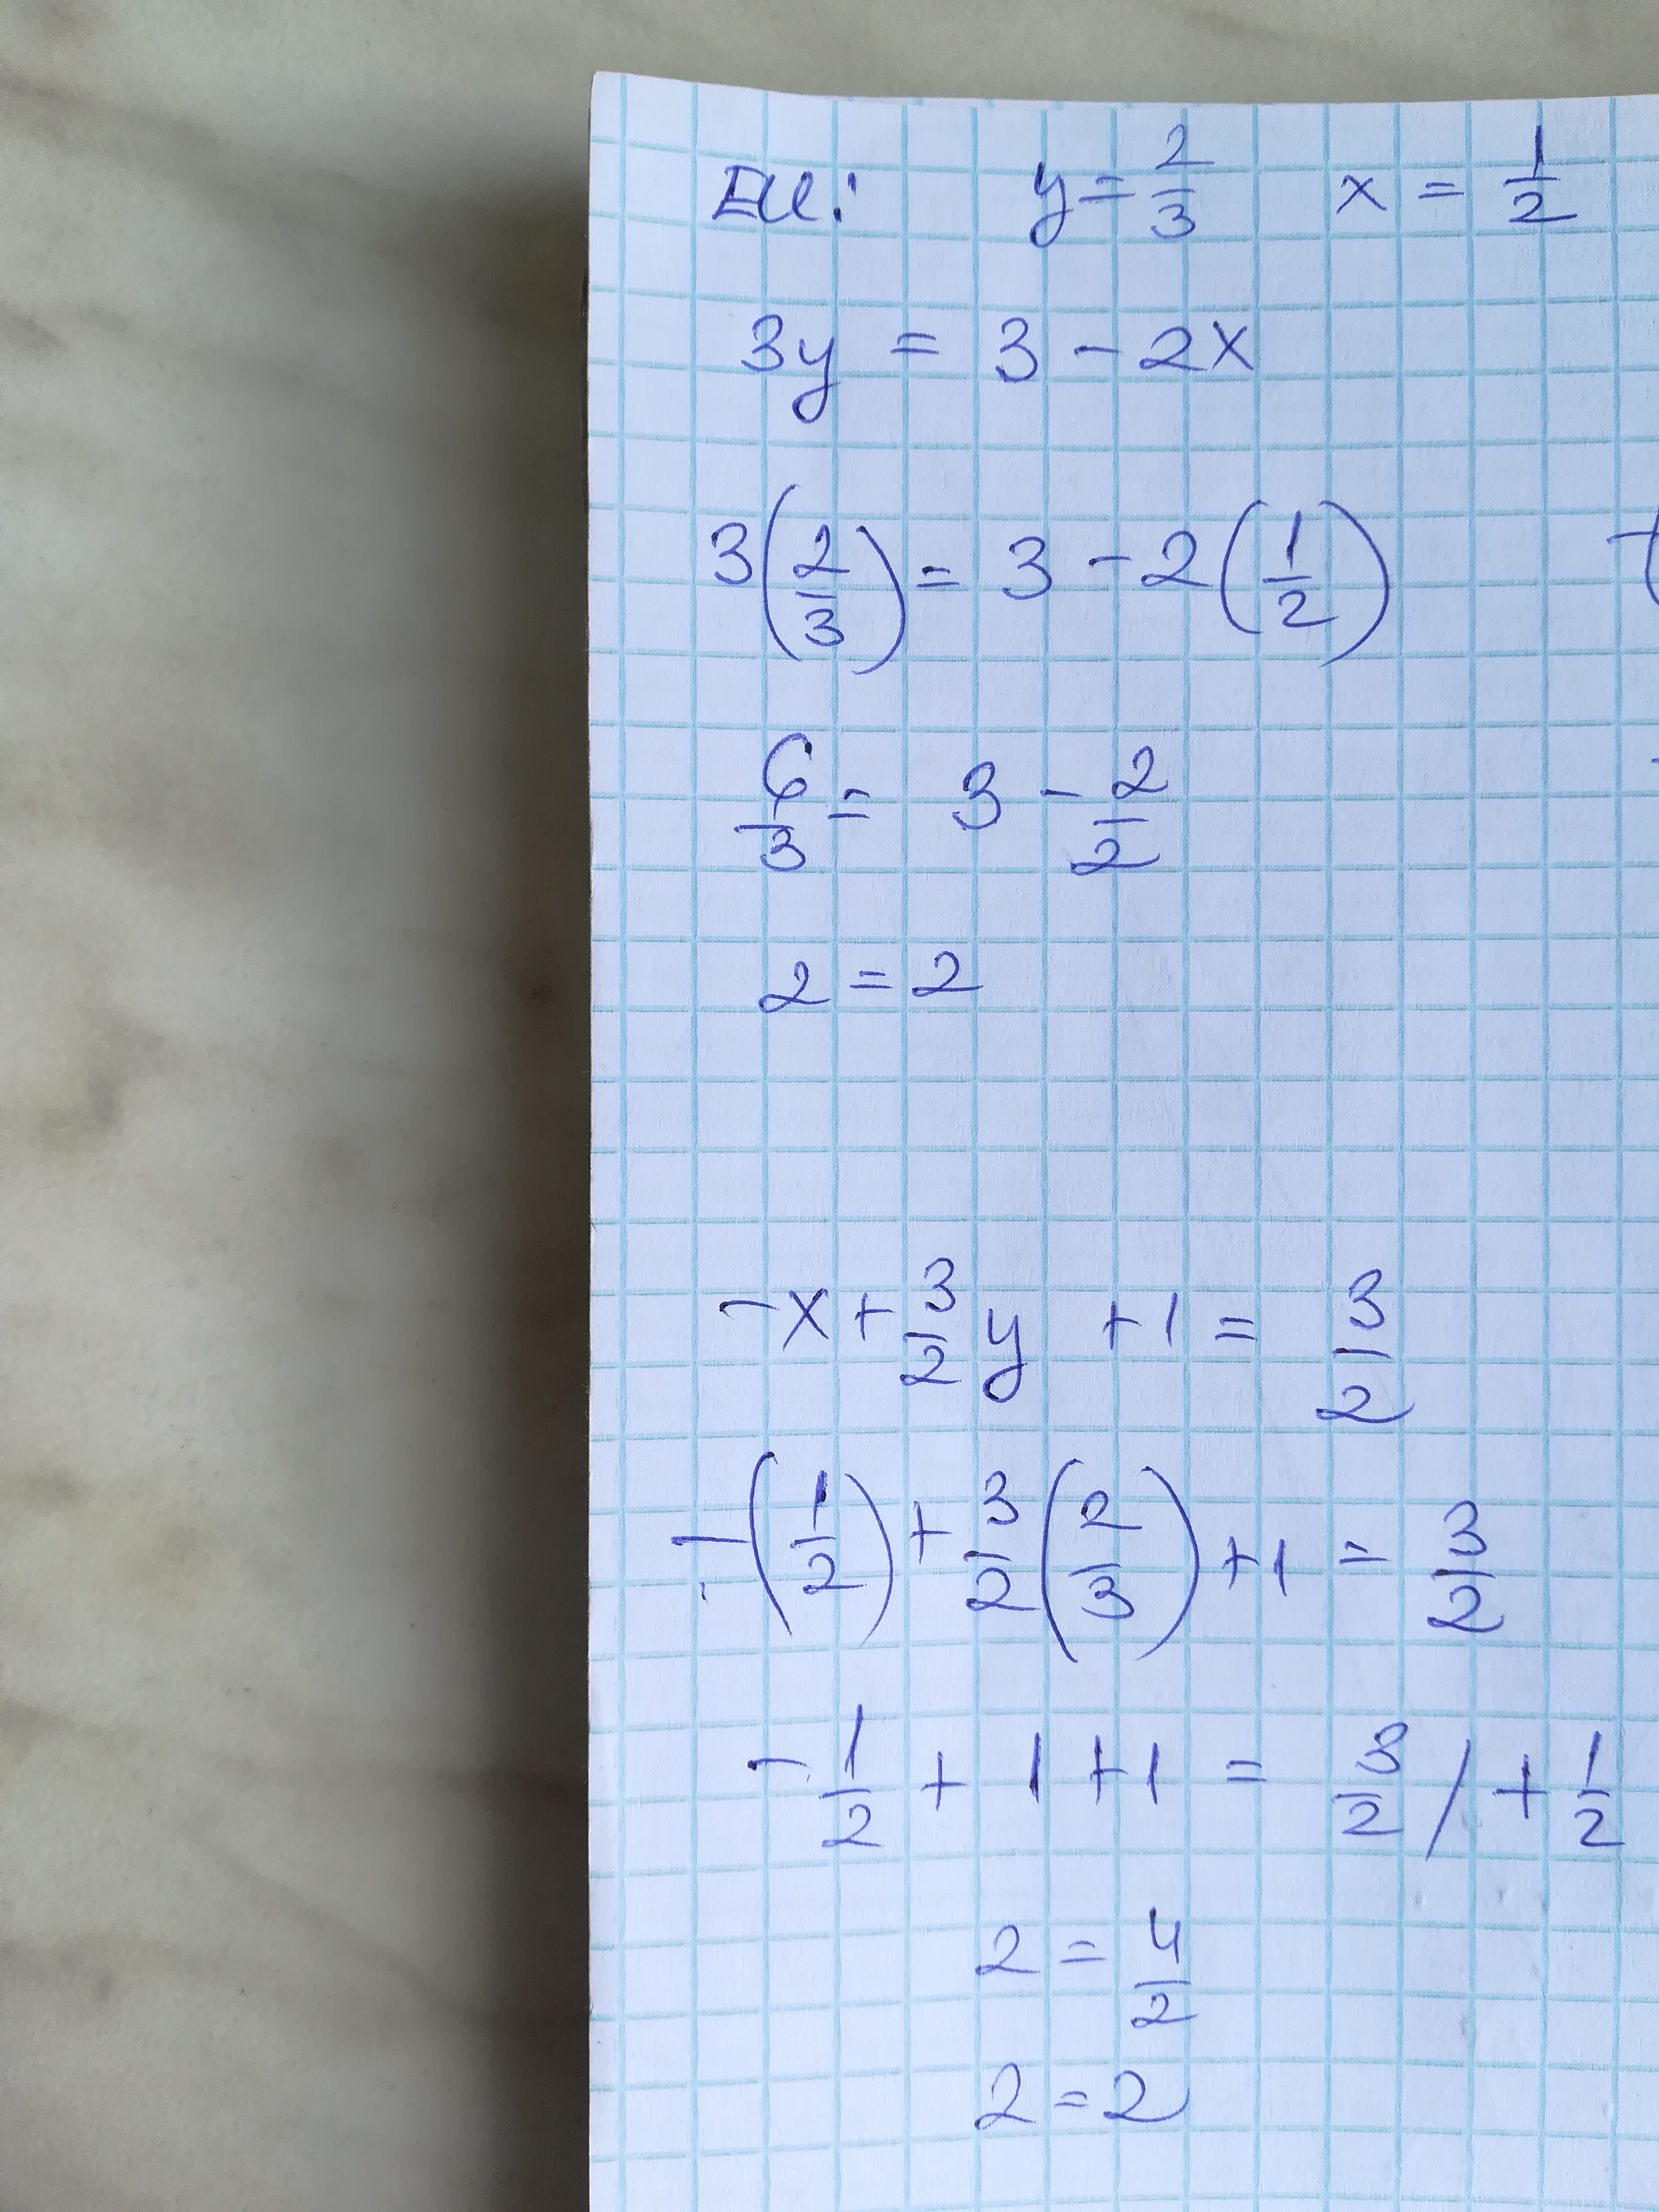 Ell: y = 2/3 x = 1/2
3y = 3 - 2x
3(2/3) = 3 - 2(1/2)
6/3 = 3 - 2/2
2 = 2
-x + 3/2 y + 1 = 3/2
-(1/2) + 3/2(2/3) + 1 = 3/2
-1/2 + 1 + 1 = 3/2 / + 1/2
2 = 4/2
2 = 2